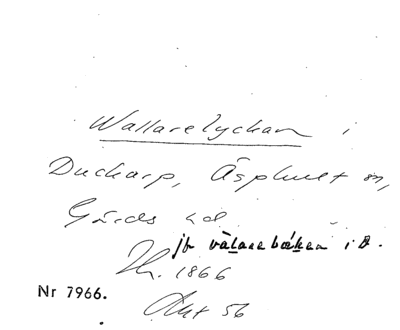 Wallarelyckan i
Duckarp, Äsphult sn,
Gärds hd
jfr välarebäken i D.
Lk. 1866
Nr 7966.
Akt 56